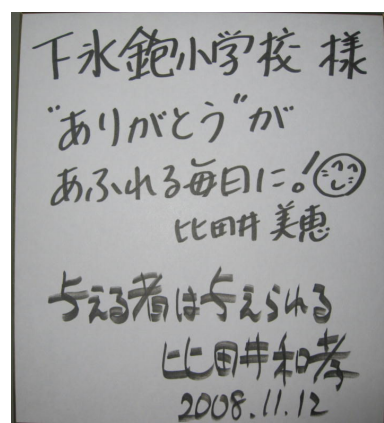 下氷鉋小学校 様
"ありがとう"が
あふれる毎日に。!
比田井美恵
与える者は与えられる
比田井和孝
2008.11.12